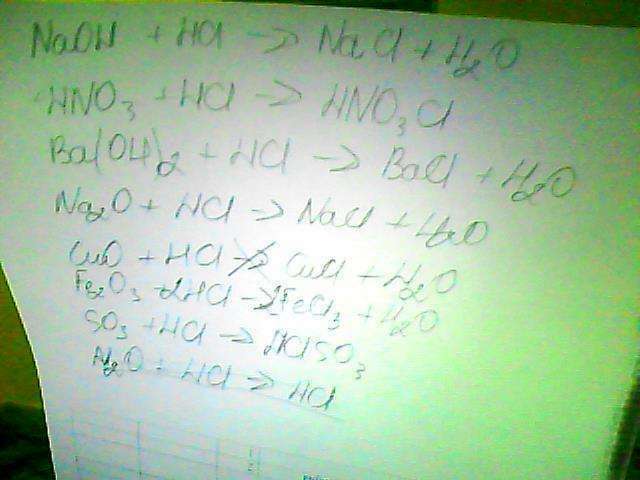 NaOH + HCl -> NaCl + H2O
HNO3 + HCl -> HNO3Cl
Ba(OH)2 + HCl -> BaCl + H2O
Na2O + HCl -> NaCl + H2O
CuO + HCl -> CuCl + H2O
Fe2O3 + HCl -> 2FeCl3 + H2O
SO3 + HCl -> HClSO3
N2O + HCl -> HCl